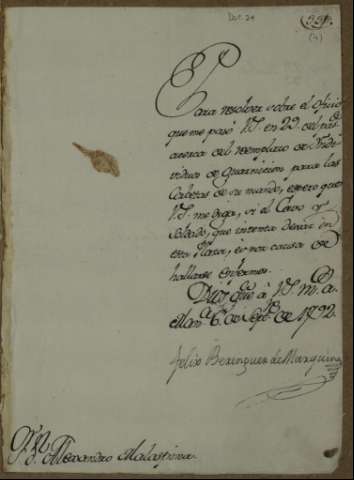 Doc. 24
Para resolver sobre el oficio
que me pasó V.S. en 22 del pas.
acerca del reemplazo de Indi
viduos de Guarnicion para las
Corbetas de su mando, espero que
V.S. me diga, si el Cavo y
Soldado, que intenta dexar en
esta Plaza, es por causa de
hallarse enfermos.
Dios gue. à V.S. m. a.
Man.a 6 de Sept.e de 1792.
Felix Berenguer de Marquina
S.r D. Alexandro Malaspina.